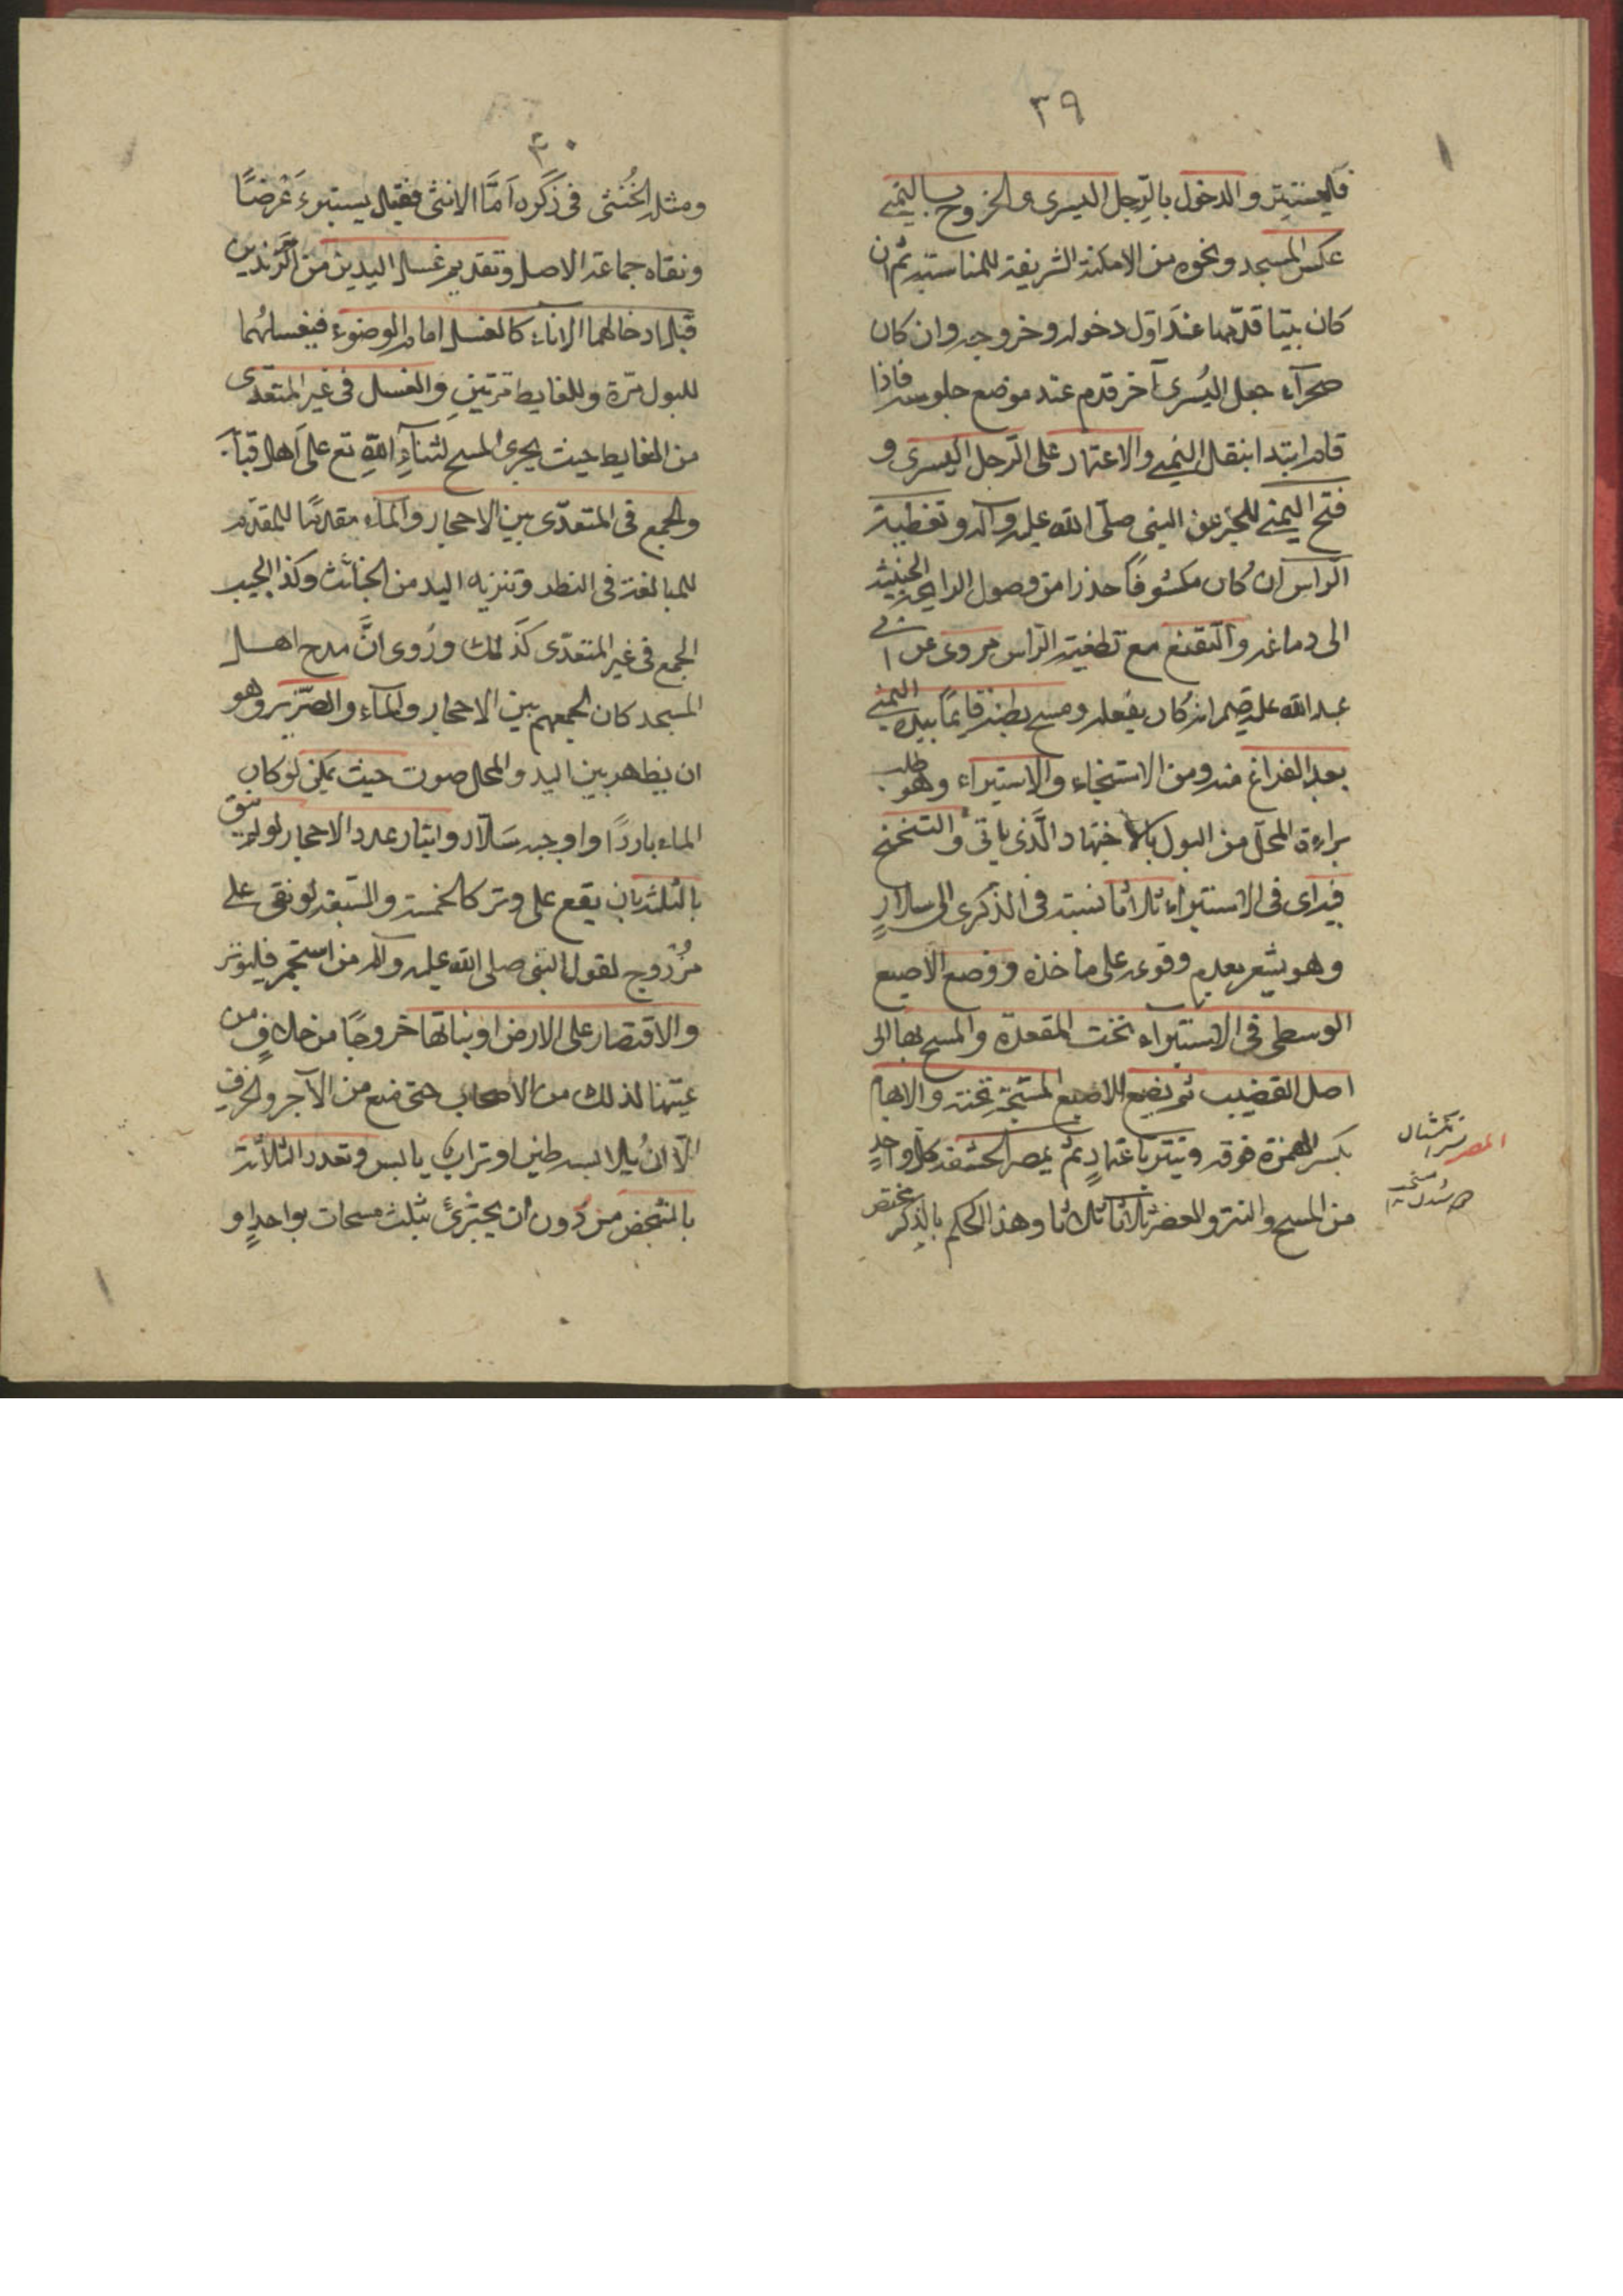 ٣٩
فليستتر والدخول بالرجل اليسرى والخروج باليمنى
عكس المسجد ونحوه من الامكنة الشريفة للمناسبة ثم ان
كان بيتا قدّمها عند اوّل دخوله وخروجه وان كان
صحرآء جعل اليُسرى آخر قدم عند موضع جلوسه فاذا
قام ابتدا بنقل اليمنى والاعتماد على الرجل اليسرى و
فتح اليمنى للخبر عن النبى صلّى الله عليه وآله وتغطية
الرأس ان كان مكشوفاً حذرا من وصول الرايحة الخبيثة
الى دماغه والتقنع مع تطغية الراس مروى عن ابى
عبد الله عليه انه كان يفعله ومسح بطنه قايمًا بيده اليمنى
بعد الفراغ منه ومن الاستنجاء والاستبراء وهو طلب
براءة المحلّ من البول بالاجتهاد الّذى ياتى والتنحنح
فيه اى فى الاستبراء ثلاثا نسبه فى الذكرى الى سلارٍ
وهو يشعر بعدم وقوعه على ماخذه ووضع الاصبع
الوسطى فى الاستبراء تحت المقعدة والمسح بها الى
اصل القضيب ثم يضع الاصبع المسبّحة تحته والابهام
بكسر الهمزة فوقه وينتر باعتمادٍ ثم يعصر الحشفة كل واحدٍ
من المسح والنتر والعصر ثلاثا ثلاثا وهذا الحكم بالذكر مختص
٣٠
ومثله الخُنثى فى ذَكَره اَمَّا الانثى فقيل يستبرئ عَرْضًا
ونفاه جماعة الاصل وتقديم غسل اليدين من الزندين
قبل ادخالهما الاناء كالغسل امام الوضوء فيغسلهُما
للبول مرّة وللغايط مرّتينِ والغسل فى غير المتعدّى
من الغايط حيث يجزى المسح لثنآءِ اللهِ تع على اهل قبآ
والجمع فى المتعدّى بين الاحجار والمآء مقدمًا للمقدّم
للمبالغة فى وتنزيه اليد من الخبائث وكذا
الجمع فى غير المتعدّى كذلك ورُوى انَّ مدح اهل
المسجد كان لجمعهم بين الاحجار والمآء والصّرير وهو
ان يظهر بين اليد والمحل صوت حيث يمكن لو كان
الماء باردًا واوجبه سَلّار وايتار عدد الاحجار لو لم ينق
بالثلثه بان يقع على وتر كالخمسة والسّبعة لو نقى على
مزْدوج لقول النبى صلى الله عليه وآله من استجمر فليوتر
والاقتصار على الارض او نباتها خروجًا من خلافٍ من
عيّنها لذلك من الاصحاب حتى منع من الآجر والخزف
الّا ان يلابسه طين او ترابٌ يابس وتعدد الثلاثة
بالشخص من دون ان يجتزئ بثلث مسحات بواحدٍ و